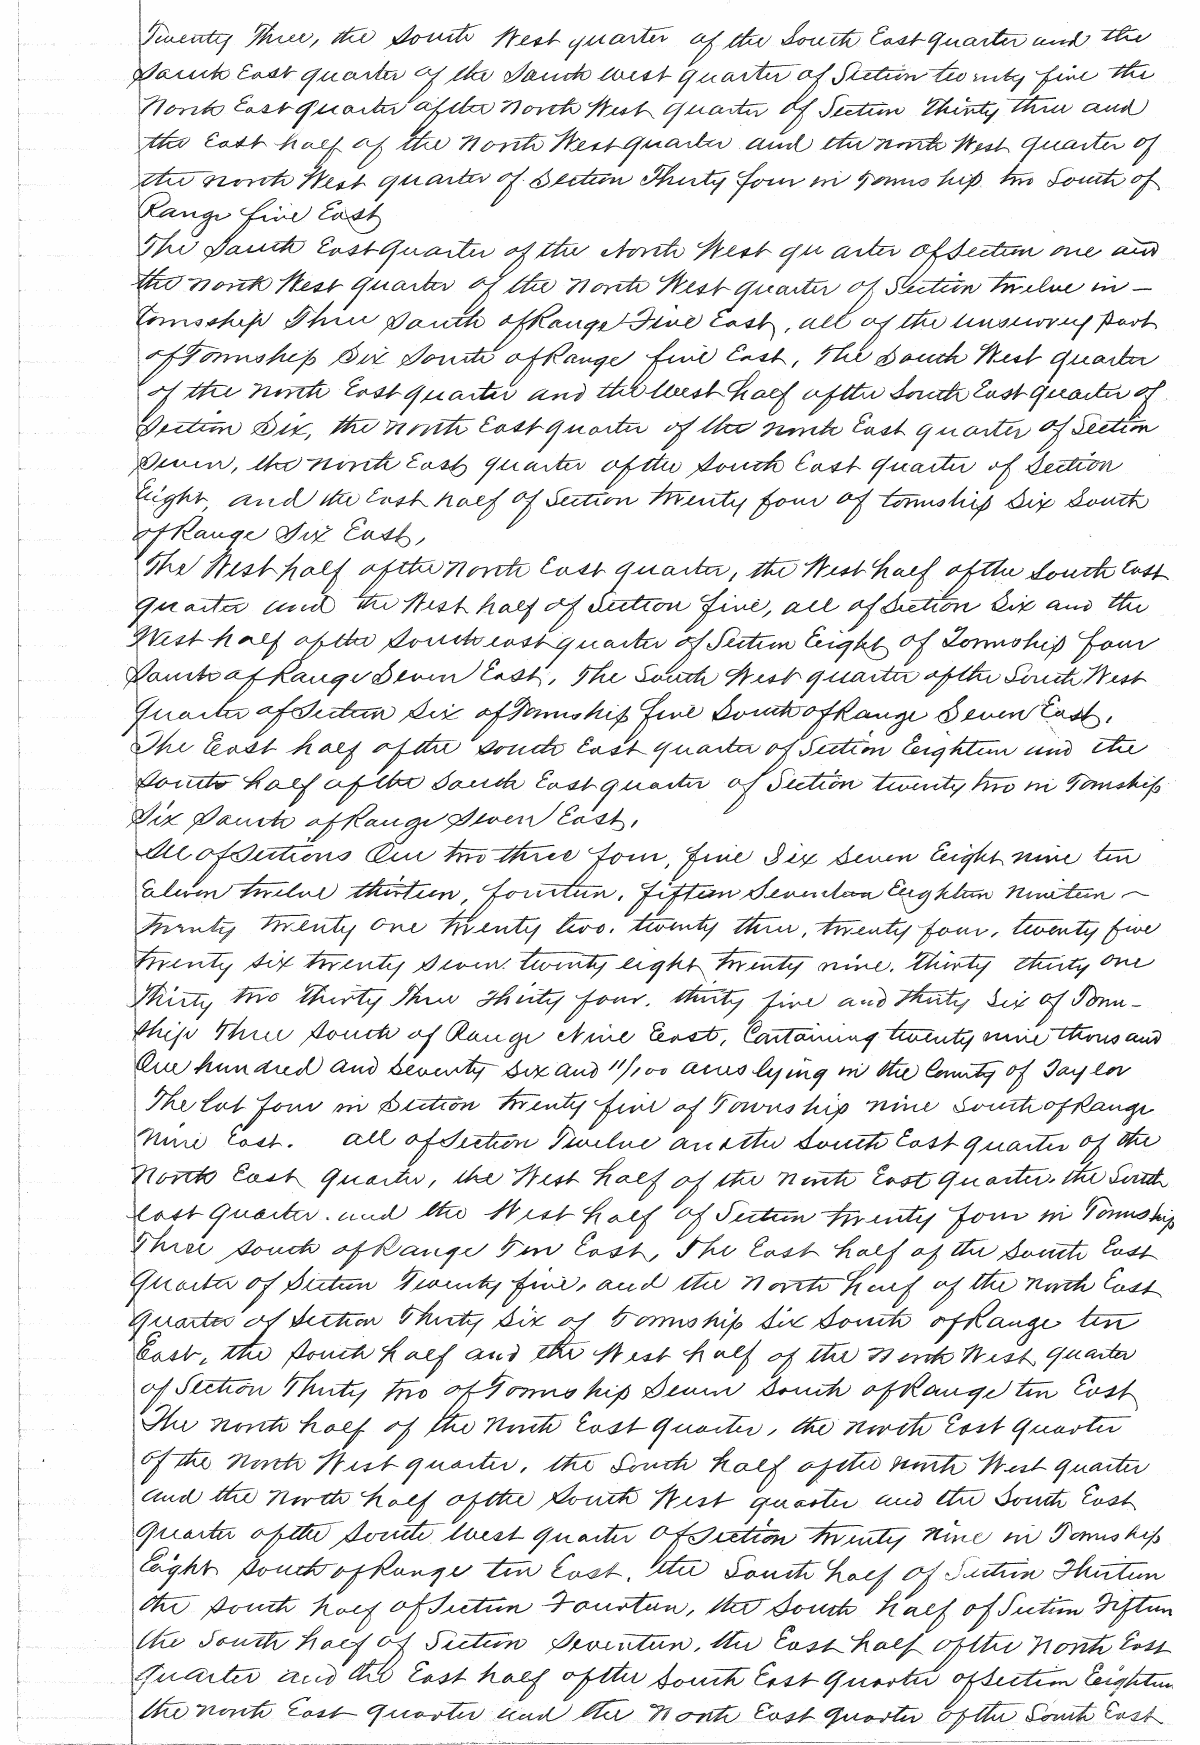 Twenty Three, the South West quarter of the South East quarter and the
South East quarter of the South west quarter of Section twenty five the
North East quarter of the North West quarter of Section Thirty three and
the East half of the North West quarter and the North West quarter of
the North West quarter of Section Thirty four in Township two South of
Range five East
The South East quarter of the North West quarter of Section one and
the North West quarter of the North West quarter of Section twelve in –
Township Three South of Range Five East, all of the unsurvey part
of Township Six South of Range five East, The South West quarter
of the North East quarter and the West half of the South East quarter of
Section Six, the North East quarter of the North East quarter of Section
Seven, the North East quarter of the South East quarter of Section
Eight, and the East half of Section twenty four of township Six South
of Range Six East,
The West half of the North East quarter, the West half of the South East
quarter and the West half of Section five, all of Section Six and the
West half of the South east quarter of Section Eeight of Township four
South of Range Seven East, The South West quarter of the South West
quarter of Section Six of Township five South of Range Seven East.
The East half of the South East quarter of Section Eighteen and the
South half of the South East quarter of Section twenty two in Township
Six South of Range Seven East.
All of Sections One two three four, five Six Seven Eeight nine ten
Eleven twelve thirteen, fourteen, fifteen Seventeen Eeighteen Nineteen –
twenty twenty one twenty two, twenty three, twenty four, twenty five
twenty six twenty seven twenty eight twenty nine, thirty thirty one
Thirty two Thirty Three Thirty four, thirty five and thirty Six of Town-
ship Three South of Range Nine East, Containing twenty nine thousand
One hundred and Seventy Six and 11/100 acres lying in the County of Taylor
The lot four in Section twenty five of Township nine South of Range
Nine East. all of Section Twelve and the South East quarter of the
North East quarter, the West half of the North East quarter, the South
east quarter and the West half of Section twenty four in Township
Three South of Range Ten East, The East half of the South East
quarter of Section Twenty five, and the North half of the North East
quarter of Section Thirty Six of Township Six South of Range ten
East, the South half and the West half of the North West quarter
of Section Thirty two of Township Seven South of Range ten East
The North half of the North East quarter, the North East quarter
of the North West quarter, the South half of the North West quarter
and the North half of the South West quarter and the South East
quarter of the South West quarter of Section twenty nine in Township
Eight South of Range ten East, the South half of Section Thirteen
the South half of Section Fourteen, the South half of Section Fifteen
the South half of Section Seventeen, the East half of the North East
quarter and the East half of the South East quarter of Section Eeighteen
the North East quarter and the North East quarter of the South East